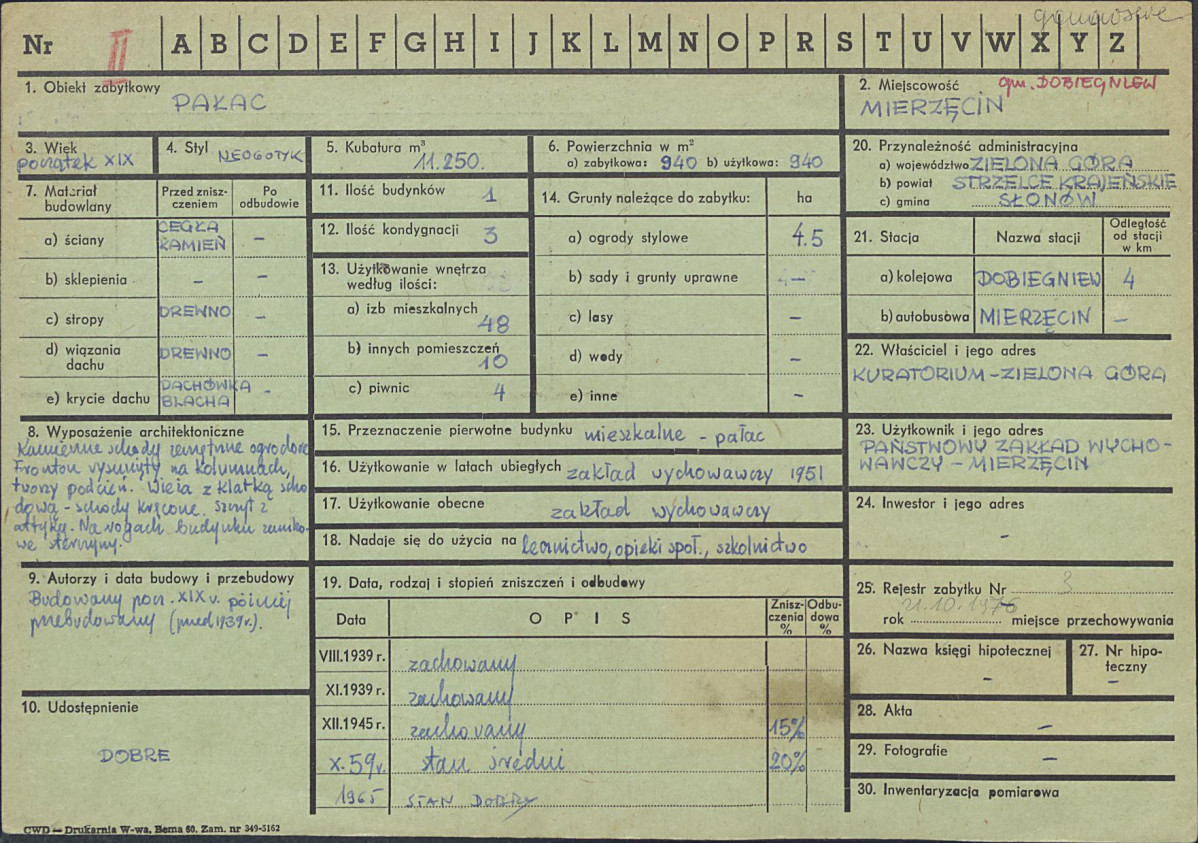 Nr II A B C D E F G H I J K L M N O P R S T U V W X Y Z
1. Obiekt zabytkowy
PAŁAC
2. Miejscowość gm. DOBIEGNIEW
MIERZĘCIN
3. Wiek
początek XIX
4. Styl NEOGOTYK
5. Kubatura m³
11.250.
6. Powierzchnia w m²
a) zabytkowa: 940 b) użytkowa: 940
20. Przynależność administracyjna
a) województwo ZIELONA GÓRA
b) powiat STRZELCE KRAJEŃSKIE
c) gmina SŁONÓW
7. Materiał budowlany
Przed zniszczeniem
Po odbudowie
a) ściany CEGŁA KAMIEŃ -
b) sklepienia - -
c) stropy DREWNO -
d) wiązania dachu DREWNO -
e) krycie dachu DACHÓWKA BLACHA -
11. Ilość budynków 1
12. Ilość kondygnacji 3
13. Użytkowanie wnętrza
według ilości:
a) izb mieszkalnych 48
b) innych pomieszczeń 10
c) piwnic 4
14. Grunty należące do zabytku: ha
a) ogrody stylowe 4.5
b) sady i grunty uprawne -
c) lasy -
d) wody -
e) inne -
21. Stacja Nazwa stacji Odległość od stacji w km
a) kolejowa DOBIEGNIEW 4
b) autobusowa MIERZĘCIN -
22. Właściciel i jego adres
KURATORIUM - ZIELONA GÓRA
8. Wyposażenie architektoniczne
Kamienne schody zewnętrzne ogrodowe
Fronton wysunięty na kolumnach,
tworzy podcień. Wieża z klatką scho
dową - schody kręcone. Szczyt z
attyką. Na rogach budynku zamko-
we sterczyny.
15. Przeznaczenie pierwotne budynku mieszkalne - pałac
16. Użytkowanie w latach ubiegłych zakład wychowawczy 1951
17. Użytkowanie obecne zakład wychowawczy
18. Nadaje się do użycia na lecznictwo, opieki społ., szkolnictwo
23. Użytkownik i jego adres
PAŃSTWOWY ZAKŁAD WYCHO-
WAWCZY - MIERZĘCIN
24. Inwestor i jego adres
-
9. Autorzy i data budowy i przebudowy
Budowany pocz. XIX w. później
przebudowany (przed 1939 r.).
10. Udostępnienie
DOBRE
19. Data, rodzaj i stopień zniszczeń i odbudowy
Data OPIS Zniszczenia % Odbudowa %
VIII.1939 r. zachowany
XI.1939 r. zachowany
XII.1945 r. zachowany 15%
X.59r. stan średni 20%
1965 STAN DOBRY
25. Rejestr zabytku Nr 3
rok 21.10.1976 miejsce przechowywania
26. Nazwa księgi hipotecznej
-
27. Nr hipoteczny
-
28. Akta
-
29. Fotografie
-
30. Inwentaryzacja pomiarowa
CWD — Drukarnia W-wa, Bema 60. Zam. nr 349-5162